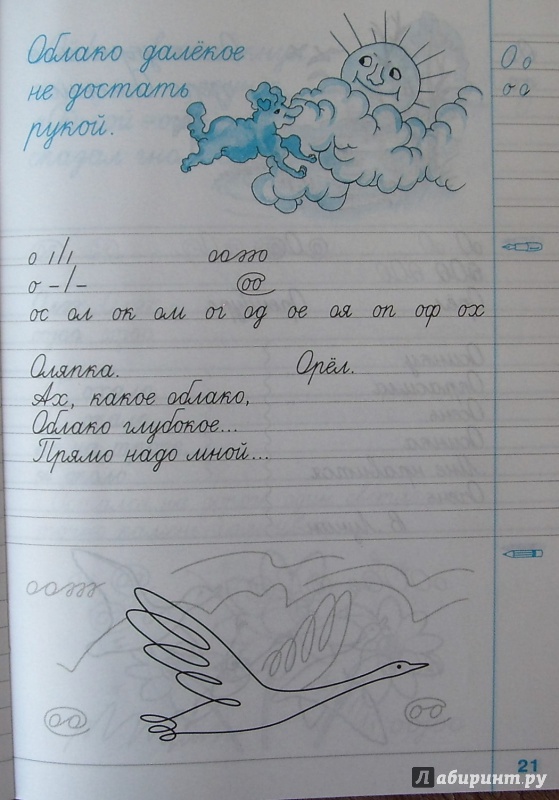 Облако далёкое
не достать
рукой.
Оо
оо
ос ол ок ом ог од ое оя оп оф ох
Оляпка. Орёл.
Ах, какое облако,
Облако глубокое...
Прямо надо мной...
21
Лабиринт.ру